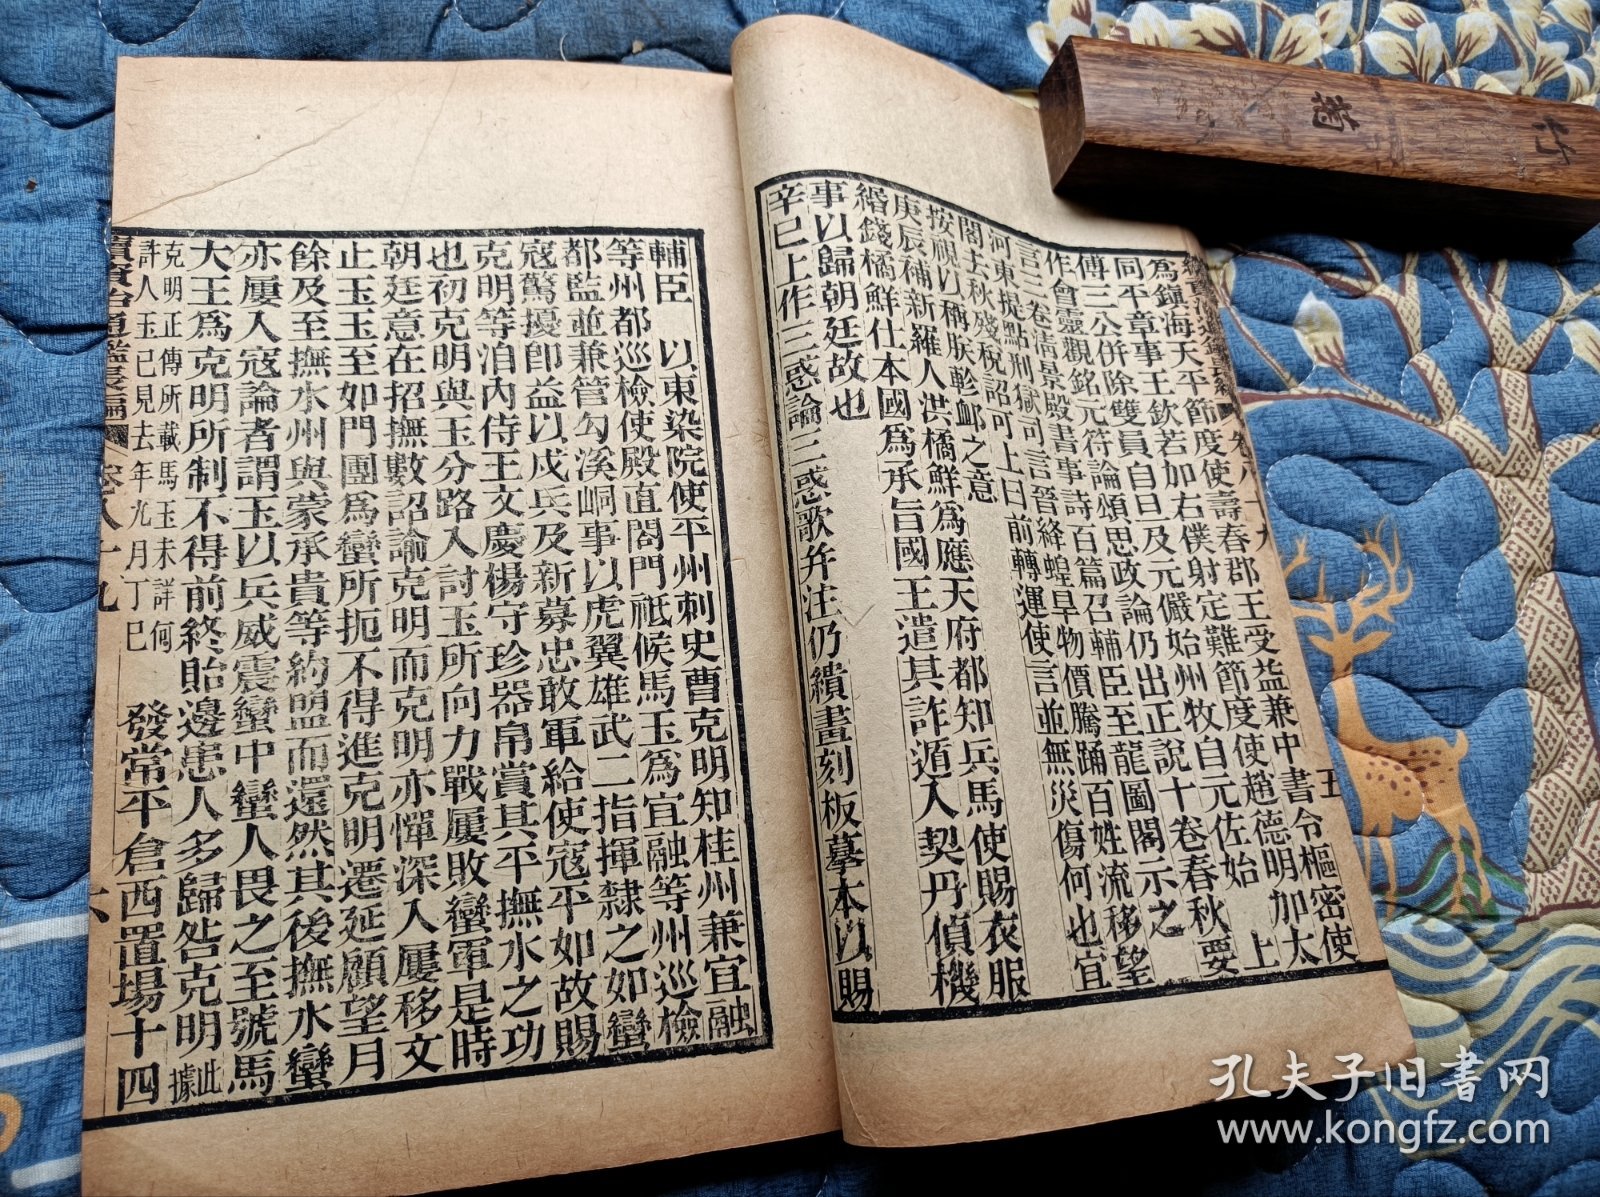 續資治通鑑長編 卷八十九 五
爲鎭海天平節度使壽春郡王受益兼中書令樞密使
同平章事王欽若加右僕射定難節度使趙德明加太
傅三公併除雙員自旦及元儼始州牧自元佐始 上
作會靈觀銘元符論頌思政論仍出正說十卷春秋要
言三卷淸景殿書事詩百篇召輔臣至龍圖閣示之
河東提點刑獄司言晉絳蝗旱物價騰踊百姓流移望
閣去秋殘稅詔可上曰前轉運使言並無災傷何也宜
按視以稱朕軫卹之意
庚辰補新羅人洪橘鮮爲應天府都知兵馬使賜衣服
緡錢橘鮮仕本國爲承旨國王遣其詐遁入契丹偵機
事以歸朝廷故也
辛巳上作三惑論三惑歌幷注仍繢畫刻板摹本以賜
輔臣 以東染院使平州刺史曹克明知桂州兼宜融
等州都巡檢使殿直閤門祗候馬玉爲宜融等州巡檢
都監並兼管勾溪峒事以虎翼雄武二指揮隸之如蠻
寇驚擾卽益以戍兵及新募忠敢軍給使寇平如故賜
克明等洎內侍王文慶楊守珍器帛賞其平撫水之功
也初克明與玉分路入討玉所向力戰屢敗蠻軍是時
朝廷意在招撫數詔諭克明而克明亦憚深入屢移文
止玉玉至如門團爲蠻所扼不得進克明遷延顧望月
餘及至撫水州與蒙承貴等約盟而還然其後撫水蠻
亦屢入寇論者謂玉以兵威震蠻中蠻人畏之至號馬
大王爲克明所制不得前終貽邊患人多歸咎克明此據
克明正傳所載馬玉未詳何
許人玉已見去年九月丁巳 發常平倉西置場十四
續資治通鑑長編 卷八十九 六
孔夫子旧書网
www.kongfz.com